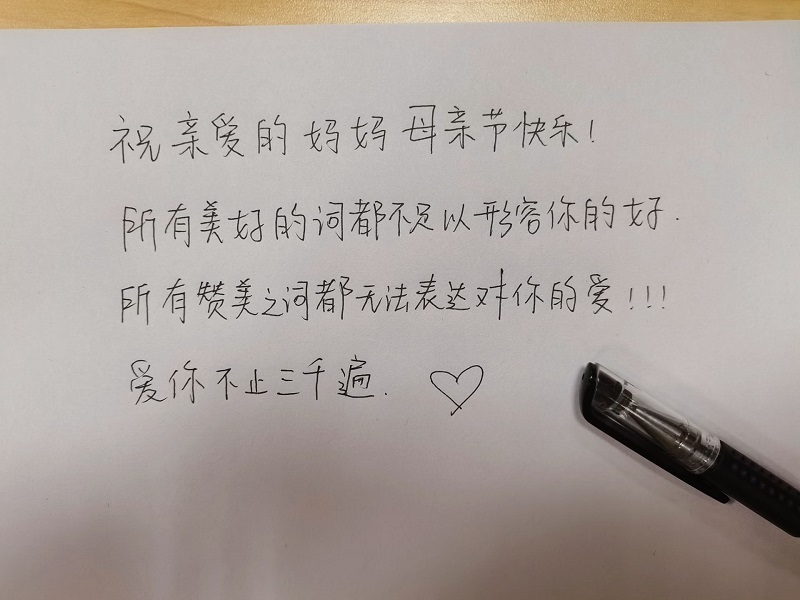 祝亲爱的妈妈母亲节快乐!
所有美好的词都不足以形容你的好.
所有赞美之词都无法表达对你的爱!!!
爱你不止三千遍.